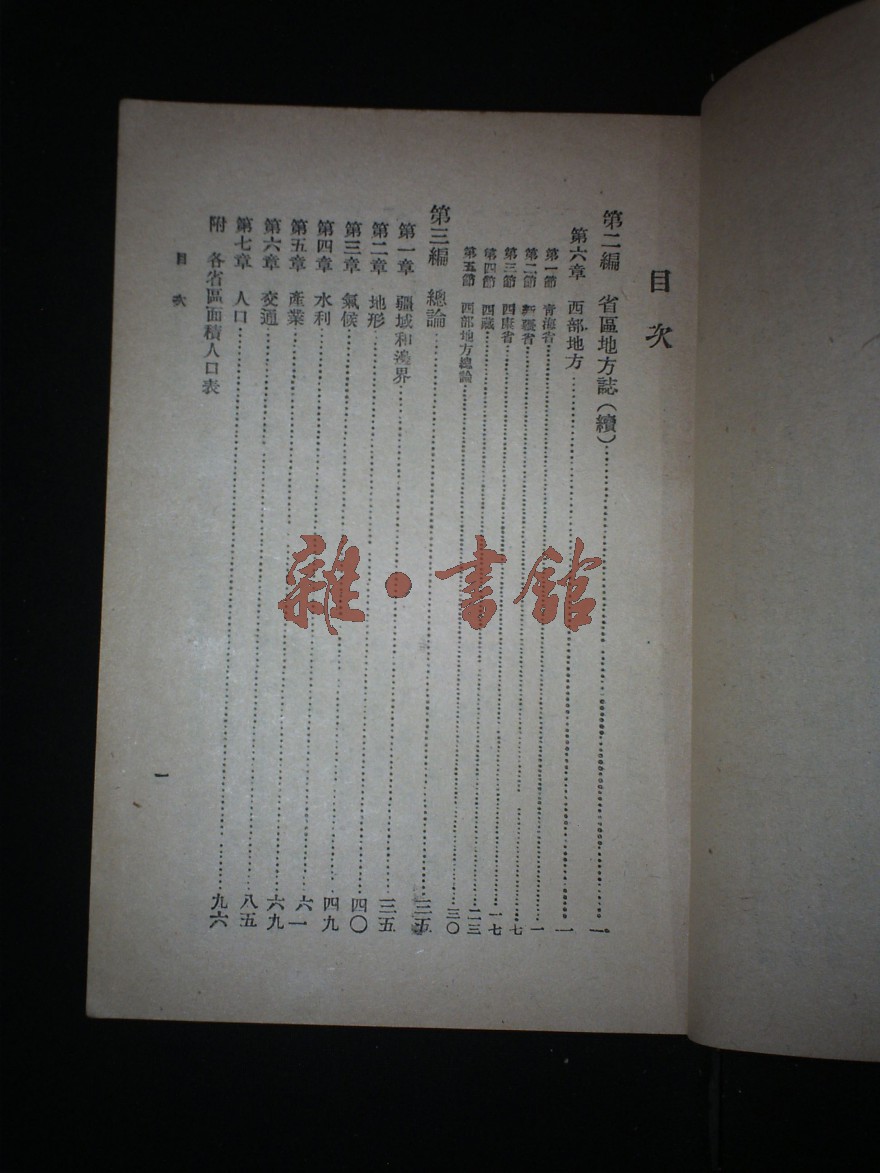 目次
第二編 省區地方誌(續)……一
第六章 西部地方……一
第一節 青海省……一
第二節 新疆省……七
第三節 西康省……一七
第四節 西藏……二三
第五節 西部地方總論……三〇
第三編 總論……三五
第一章 疆域和邊界……三五
第二章 地形……四〇
第三章 氣候……四九
第四章 水利……六一
第五章 產業……六九
第六章 交通……八五
第七章 人口……九六
附 各省區面積人口表
目次
一
雜·書館